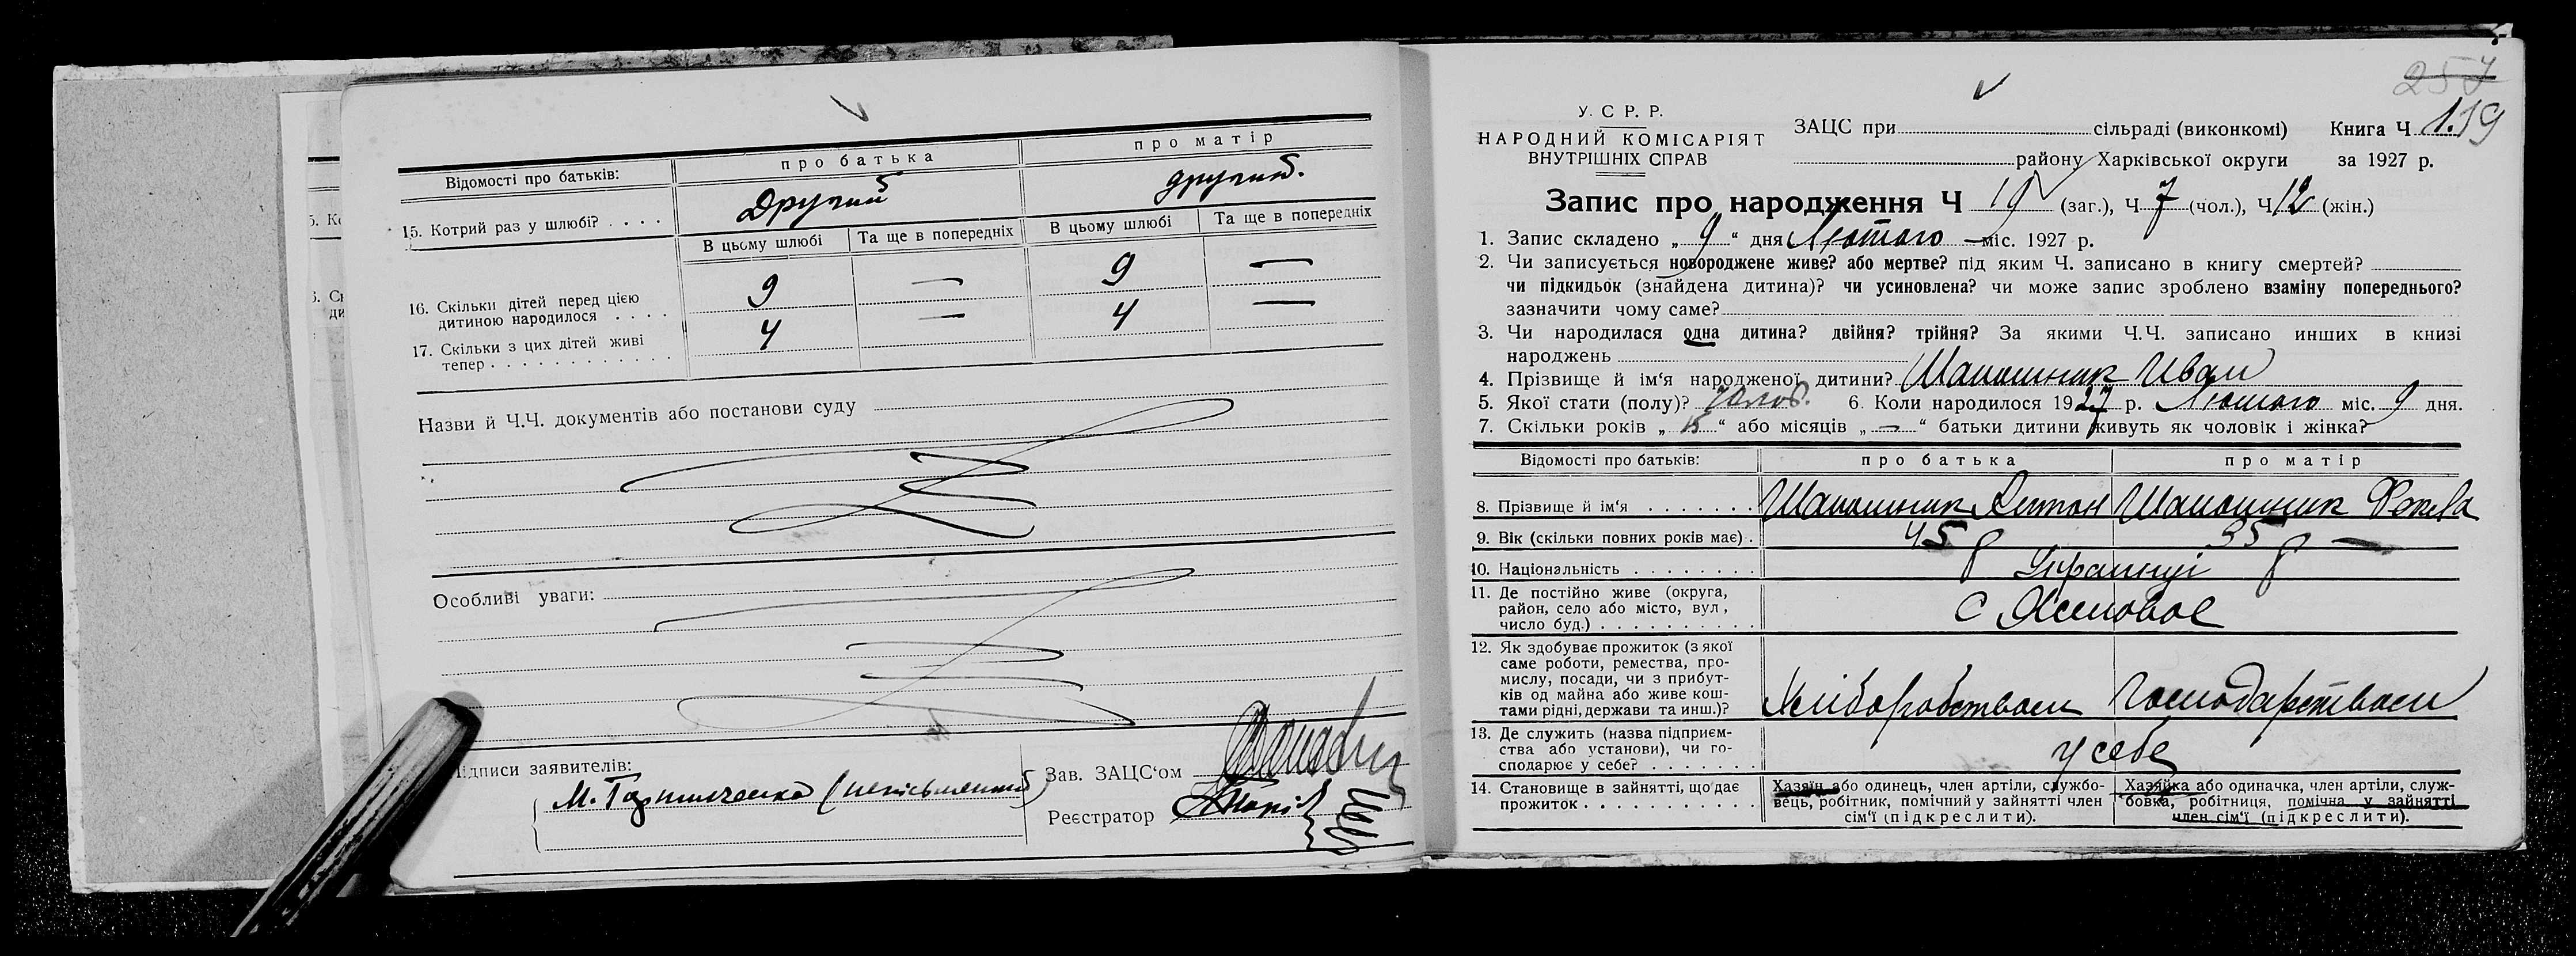 Відомості про батьків:
про батька
про матір
15. Котрий раз у шлюбі? . . . .
Другий
другий.
В цьому шлюбі
Та ще в попередніх
В цьому шлюбі
Та ще в попередніх
16. Скільки дітей перед цією
дитиною народилося . . . .
9
—
9
—
17. Скільки з цих дітей живі
тепер . . . . . . . . . . . .
4
—
4
—
Назви й Ч.Ч. документів або постанови суду
Особливі уваги:
Підписи заявителів:
(неписьменний)
Зав. ЗАЦС'ом
Реєстратор
257
119
У. С. Р. Р.
НАРОДНИЙ КОМІСАРІЯТ
ВНУТРІШНІХ СПРАВ
ЗАЦС при сільраді (виконкомі) Книга Ч 1.
району Харківської округи за 1927 р.
Запис про народження Ч 19 (заг.), Ч 7 (чол.), Ч 12 (жін.)
1. Запис складено „ 9 “ дня Лютого міс. 1927 р.
2. Чи записується новороджене живе? або мертве? під яким Ч. записано в книгу смертей?
чи підкидьок (знайдена дитина)? чи усиновлена? чи може запис зроблено взаміну попереднього?
зазначити чому саме?
3. Чи народилася одна дитина? двійня? трійня? За якими Ч.Ч. записано инших в книзі
народжень
4. Прізвище й ім'я народженої дитини? Шапошник Иван
5. Якої стати (полу)? Чолов. 6. Коли народилося 1927 р. Лютого міс. 9 дня.
7. Скільки років „ 15 “ або місяців „ — “ батьки дитини живуть як чоловік і жінка?
Відомості про батьків:
про батька
про матір
8. Прізвище й ім'я . . . . . . .
Шапошник Антон
Шапошник Фекла
9. Вік (скільки повних років має) .
45 р
35 р —
10. Національність . . . . . . . .
Українці
11. Де постійно живе (округа,
район, село або місто, вул,
число буд.) . . . . . . . . . .
с
12. Як здобуває прожиток (з якої
саме роботи, ремества, про-
мислу, посади, чи з прибут-
ків од майна або живе кош-
тами рідні, держави та инш.)?
Хліборобством
Господарством
13. Де служить (назва підприєм-
ства або установи), чи го-
сподарює у себе? . . . . . . .
у себе
14. Становище в зайнятті, що дає
прожиток . . . . . . . . . . .
Хазяїн або одинець, член артіли, службо-
вець, робітник, помічний у зайнятті член
сім'ї (підкреслити).
Хазяйка або одиначка, член артіли, служ-
бовка, робітниця, помічна у зайнятті
член сім'ї (підкреслити).